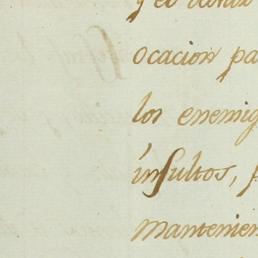 y el
ocacion pa
los enemig
insultos,
mantenien